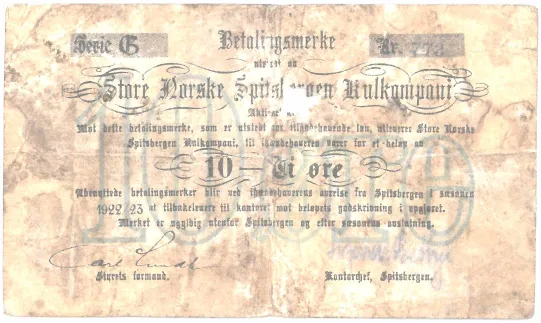 Serie G Betalingsmerke Nr. 773
utstedt av
Store Norske Spitsbergen Kulkompani
Aktieselskap
Mot dette betalingsmerke, som er utstedt for tilgodehavende løn, utleverer Store Norske
Spitsbergen Kulkompani, til ihændehaveren varer for et beløp av
10 – Ti øre
Ubenyttede betalingsmerker blir ved ihændehaverens avreise fra Spitsbergen i sæsonen
1922/23 at tilbakelevere til kontoret mot beløpets godskrivning i opgjøret.
Merket er ugyldig utenfor Spitsbergen og efter sæsonens avslutning.
Styrets formand. Kontorchef, Spitsbergen.